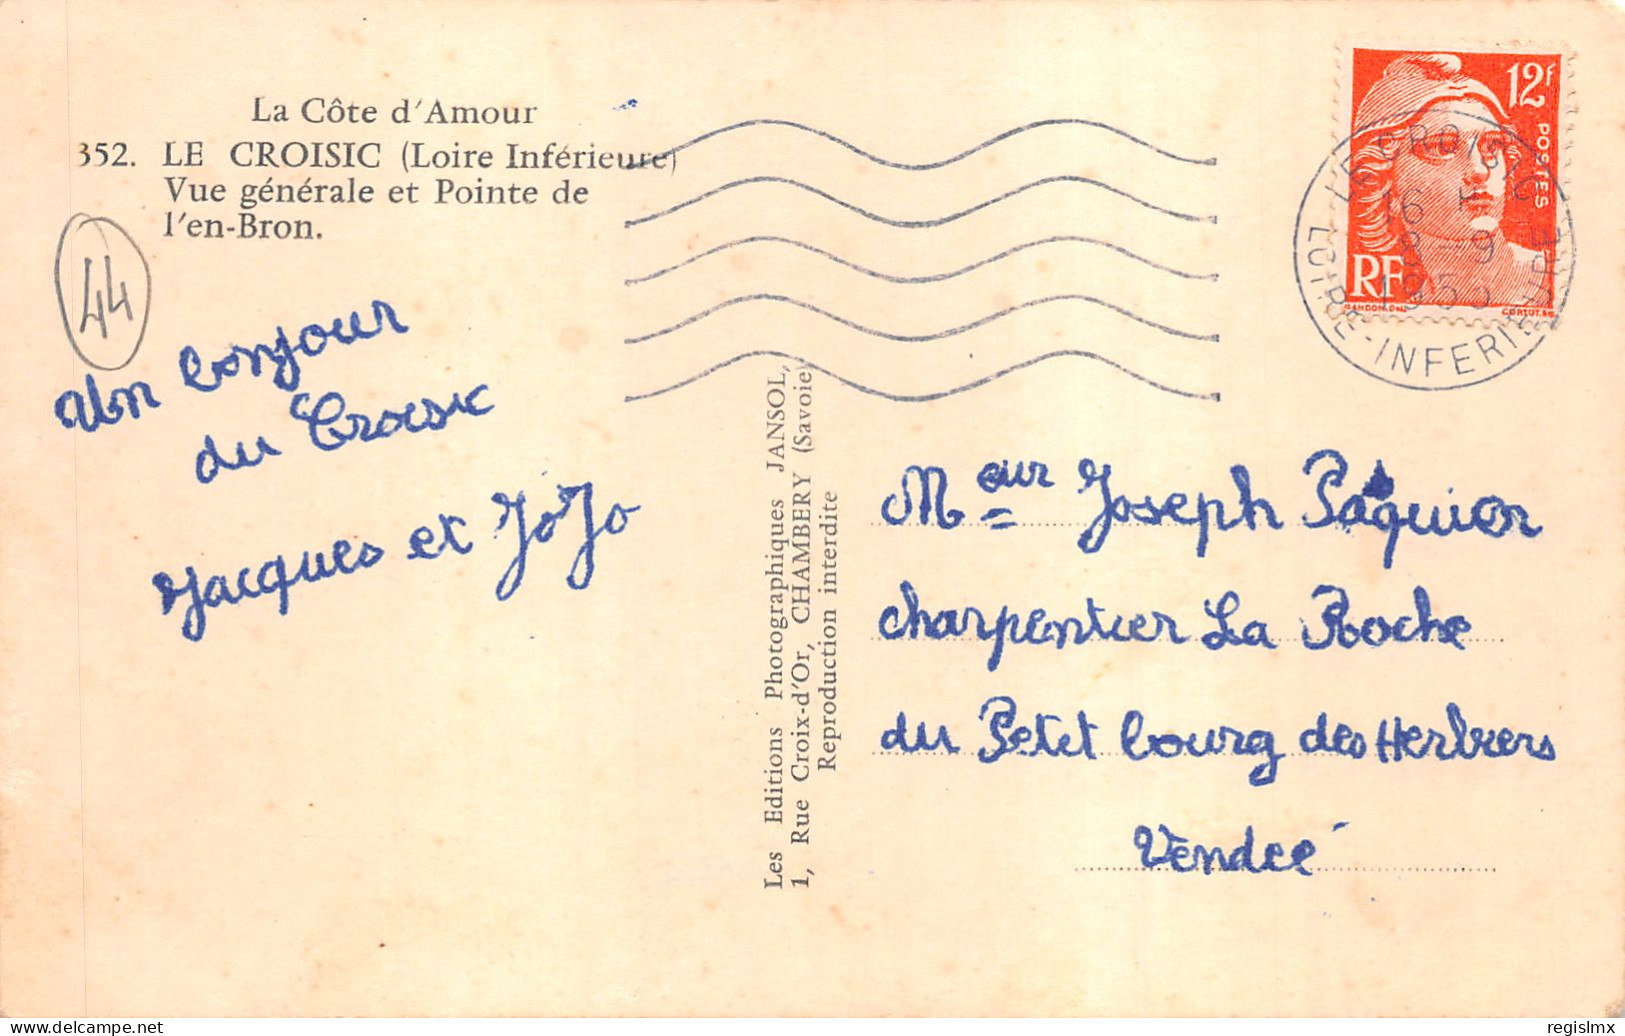 La Côte d'Amour
352. LE CROISIC (Loire Inférieure)
Vue générale et Pointe de
l'en-Bron.
44
Un bonjour
du Croisic
Jacques et JoJo
Les Editions Photographiques JANSOL,
1, Rue Croix-d'Or, CHAMBERY (Savoie)
Reproduction interdite
12F
POSTES
RF
GANDON DEL.
CORTOT SC.
LE CROISIC
16 H
8-9
LOIRE-INFERIEURE
Mr eur Joseph Paquier
charpentier La Roche
du Petit bourg des Herbiers
Vendée
regislmx
www.delcampe.net